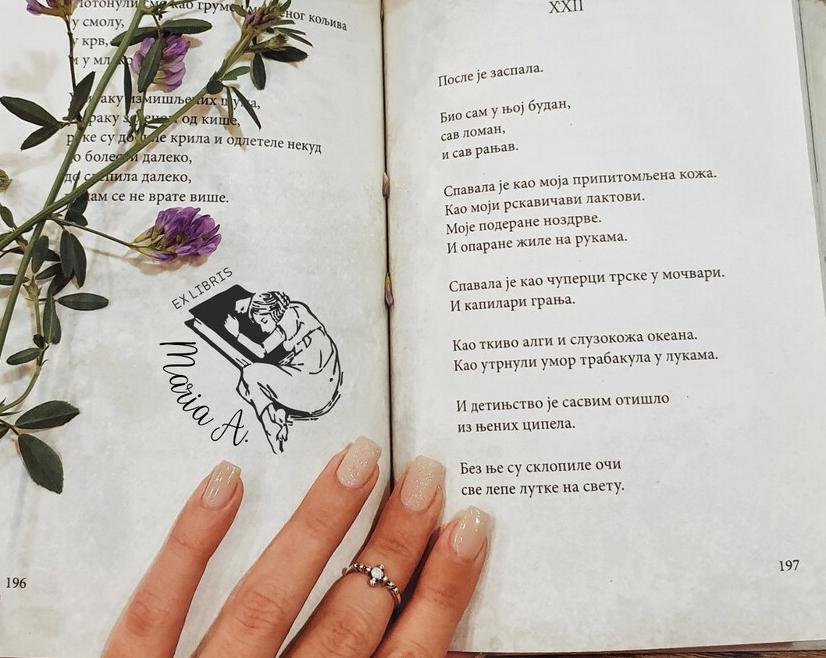 у смолу,
у крв,
и у
од кише,
су крила и одлетеле некуд
далеко,
далеко,
се не врате више.
EX LIBRIS
Maria A.
196
XXII
После је заспала.
Био сам у њој будан,
сав ломан,
и сав рањав.
Спавала је као моја припитомљена кожа.
Као моји рскавичави лактови.
Моје подеране ноздрве.
И опаране жиле на рукама.
Спавала је као чуперци трске у мочвари.
И капилари грања.
Као ткиво алги и слузокожа океана.
Као утрнули умор трабакула у лукама.
И детињство је сасвим отишло
из њених ципела.
Без ње су склопиле очи
све лепе лутке на свету.
197